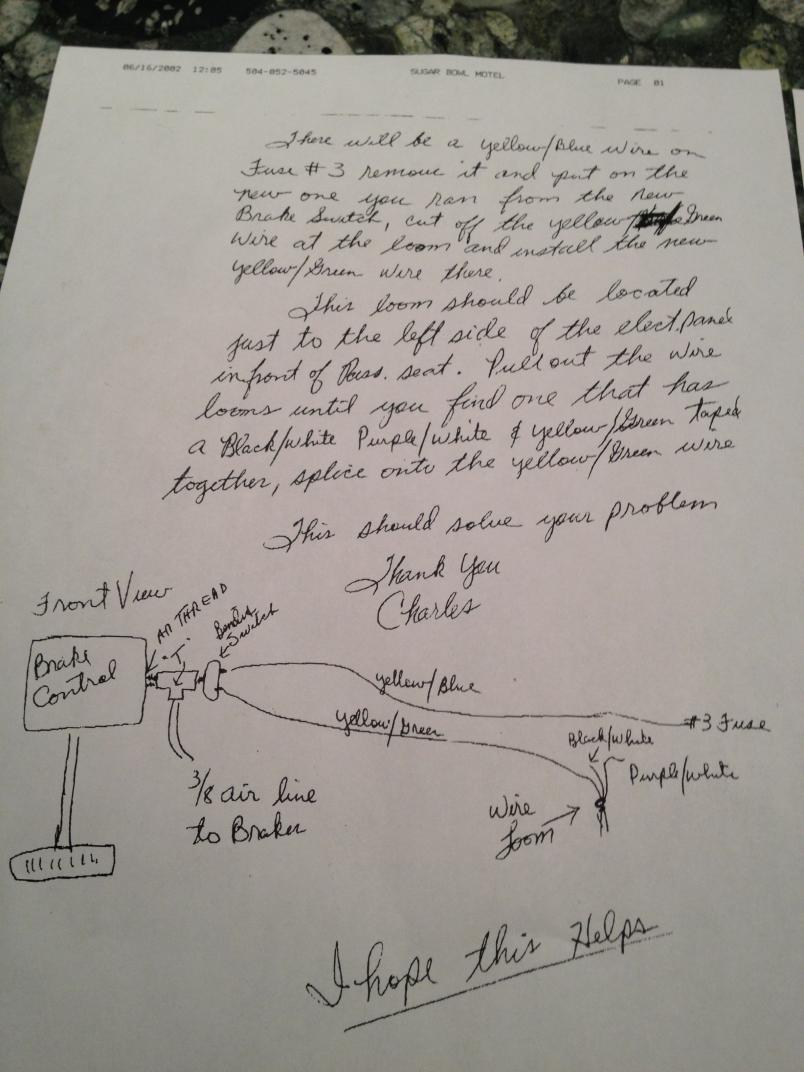 06/16/2002 12:05 504-852-5045 SUGAR BOWL MOTEL PAGE 01
There will be a yellow/Blue wire on
Fuse #3 remove it and put on the
new one you ran from the new
Brake Switch, cut off the yellow/ Green
Wire at the loom and install the new
yellow/Green wire there.
This loom should be located
just to the left side of the elect panel
infront of Pass. seat. Pull out the wire
looms until you find one that has
a Black/white Purple/white & yellow/Green taped
together, splice onto the yellow/Green wire
This should solve your problem
Thank You
Charles
Front View
THREAD
"T"
Bendix
Switch
Brake
Control
yellow/Blue
yellow/Green
#3 Fuse
Black/White
Purple/white
3/8 air line
to Brakes
Wire
Loom
I hope this Helps